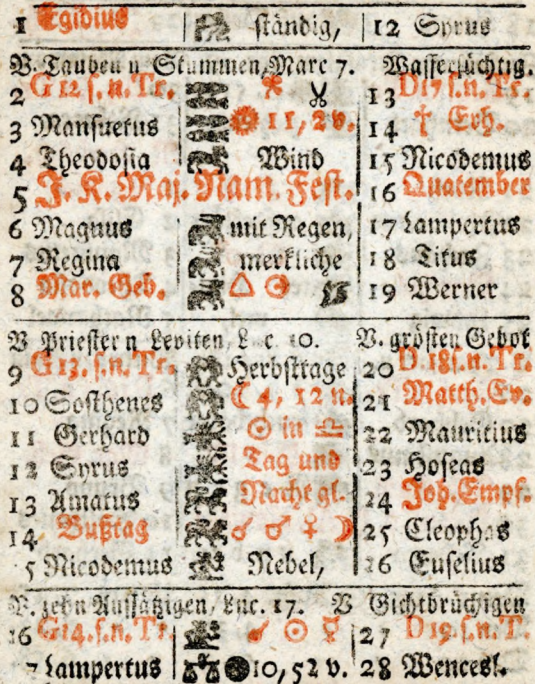 1 Egidius ständig, 12 Syrus
V. Tauben u Stummen, Marc 7. Wassersüchtig.
2 G 12 s. n. Tr. 13 D 17 s. n. Tr.
3 Mansuetus 11, 2 v. 14 † Erh.
4 Theodosia Wind 15 Nicodemus
5 J. K. Maj. Nam. Fest. 16 Quatember
6 Magnus mit Regen, 17 Lampertus
7 Regina merkliche 18 Titus
8 Mar. Geb. △ 19 Werner
V Priester n Leviten, L c. 10. V. grösten Gebot
9 G 13. s. n. Tr. Herbsttage 20 D. 18 s. n. Tr.
10 Sosthenes ☾ 4, 12 n. 21 Matth. Ev.
11 Gerhard ☉ in ♎ 22 Mauritius
12 Syrus Tag und 23 Hoseas
13 Amatus Nacht gl. 24 Joh. Empf.
14 Bußtag ☌ ♂ ♀ ☽ 25 Cleophas
5 Nicodemus Nebel, 26 Euselius
V. zehn Aussätzigen, Luc. 17. V Gichtbrüchigen
16 G 14. s. n. Tr. ☌ ☉ ☿ 27 D 19. s. n. T.
7 Lampertus 10, 52 v. 28 Wencesl.